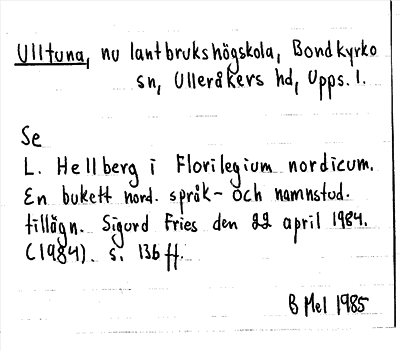 Ulltuna, nu lantbrukshögskola, Bondkyrko
sn, Ulleråkers hd, Upps. l.
Se
L. Hellberg i Florilegium nordicum.
En bukett nord. språk- och namnstud.
tillägn. Sigurd Fries den 22 april 1984.
(1984). s. 136 ff.
B Mel 1985